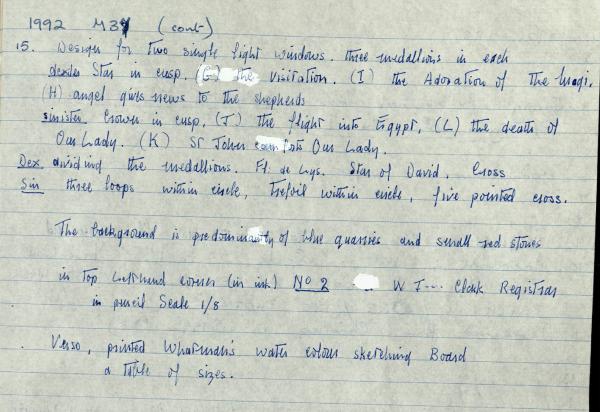 1992 M37 (cont)
15. Design for two single light windows. three medallions in each
dexter Star in cusp. (G) the Visitation. (I) the Adoration of the Magi.
(H) angel gives news to the shepherds
sinister Crown in cusp, (J) the flight into Egypt, (L) the death of
Our Lady. (K) St John comforts Our Lady.
Dex dividing the medallions. Fl. de Lys. Star of David, Cross
Sin three loops within circle, Trefoil within circle, five pointed cross.
The background is predominantly of blue quarries and small red stones
in top lefthand corner (in ink) No 2 W T... Clark Registrar
in pencil Scale 1/8
Verso, printed Whatman's water colour sketching Board
a table of sizes.